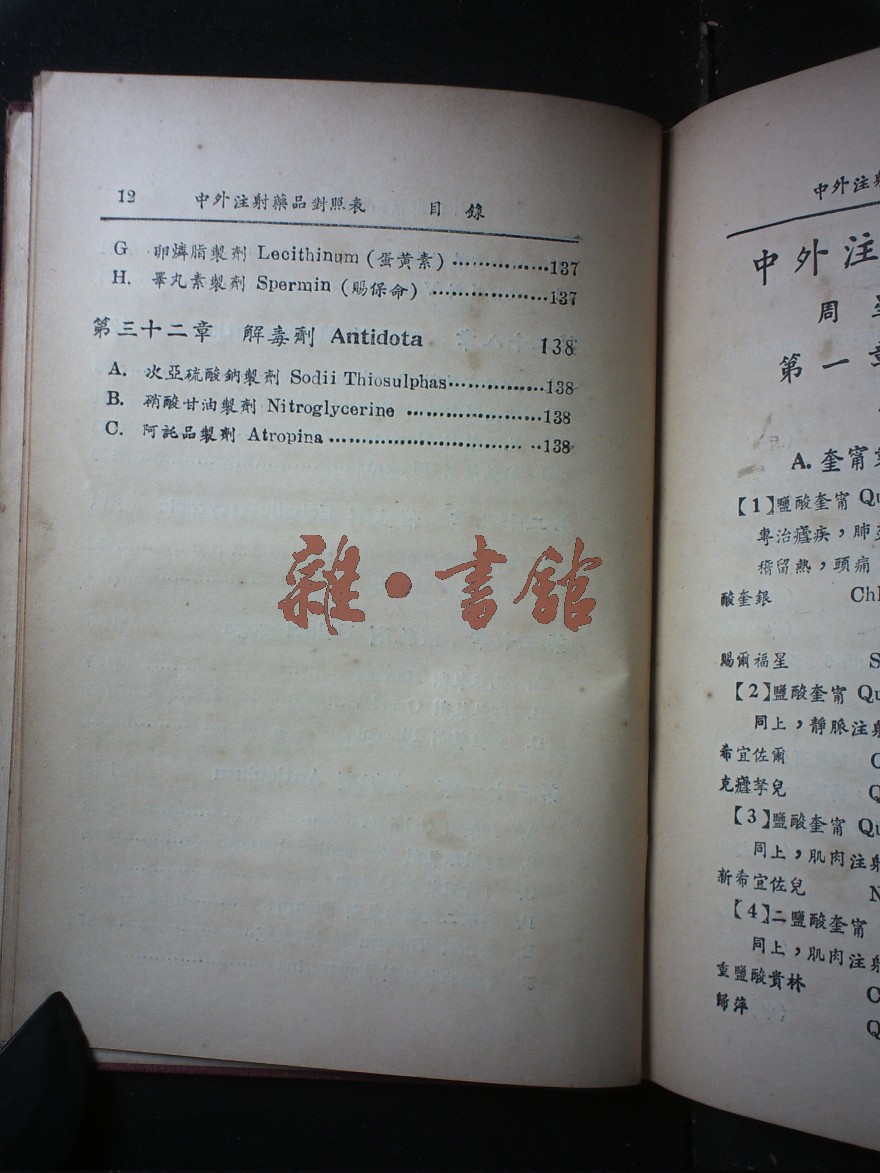 12 中外注射藥品對照表 目錄
G. 卵燐脂製劑 Lecithinum (蛋黃素) ················137
H. 睪丸素製劑 Spermin (賜保命) ····················137
第三十二章 解毒劑 Antidota 138
A. 次亞硫酸鈉製劑 Sodii Thiosulphas················138
B. 硝酸甘油製劑 Nitroglycerine ·······················138
C. 阿託品製劑 Atropina ······························ ··138
雜·書館
中外注射
中外注
周
第一章
A. 奎甯
【1】鹽酸奎甯 Qu
專治瘧疾，肺
稽留熱，頭痛
酸奎銀 Chl
賜爾福星 S
【2】鹽酸奎甯 Qu
同上，靜脈注射
希宜佐爾
克瘧孥兒 Q
【3】鹽酸奎甯 Qu
同上，肌肉注射
新希宜佐兒 N
【4】二鹽酸奎甯
同上，肌肉注射
重鹽酸貴林 C
歸萍 Q